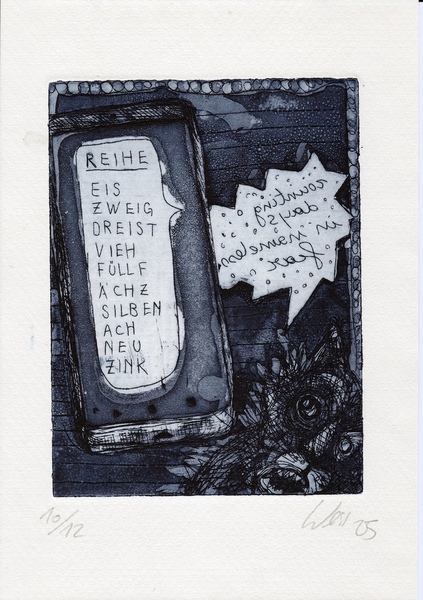 REIHE
EIS
ZWEIG
DREIST
VIEH
FÜLLF
ÄCHZ
SILBEN
ACH
NEU
ZINK
counting
days
in nameless
fear
10/12